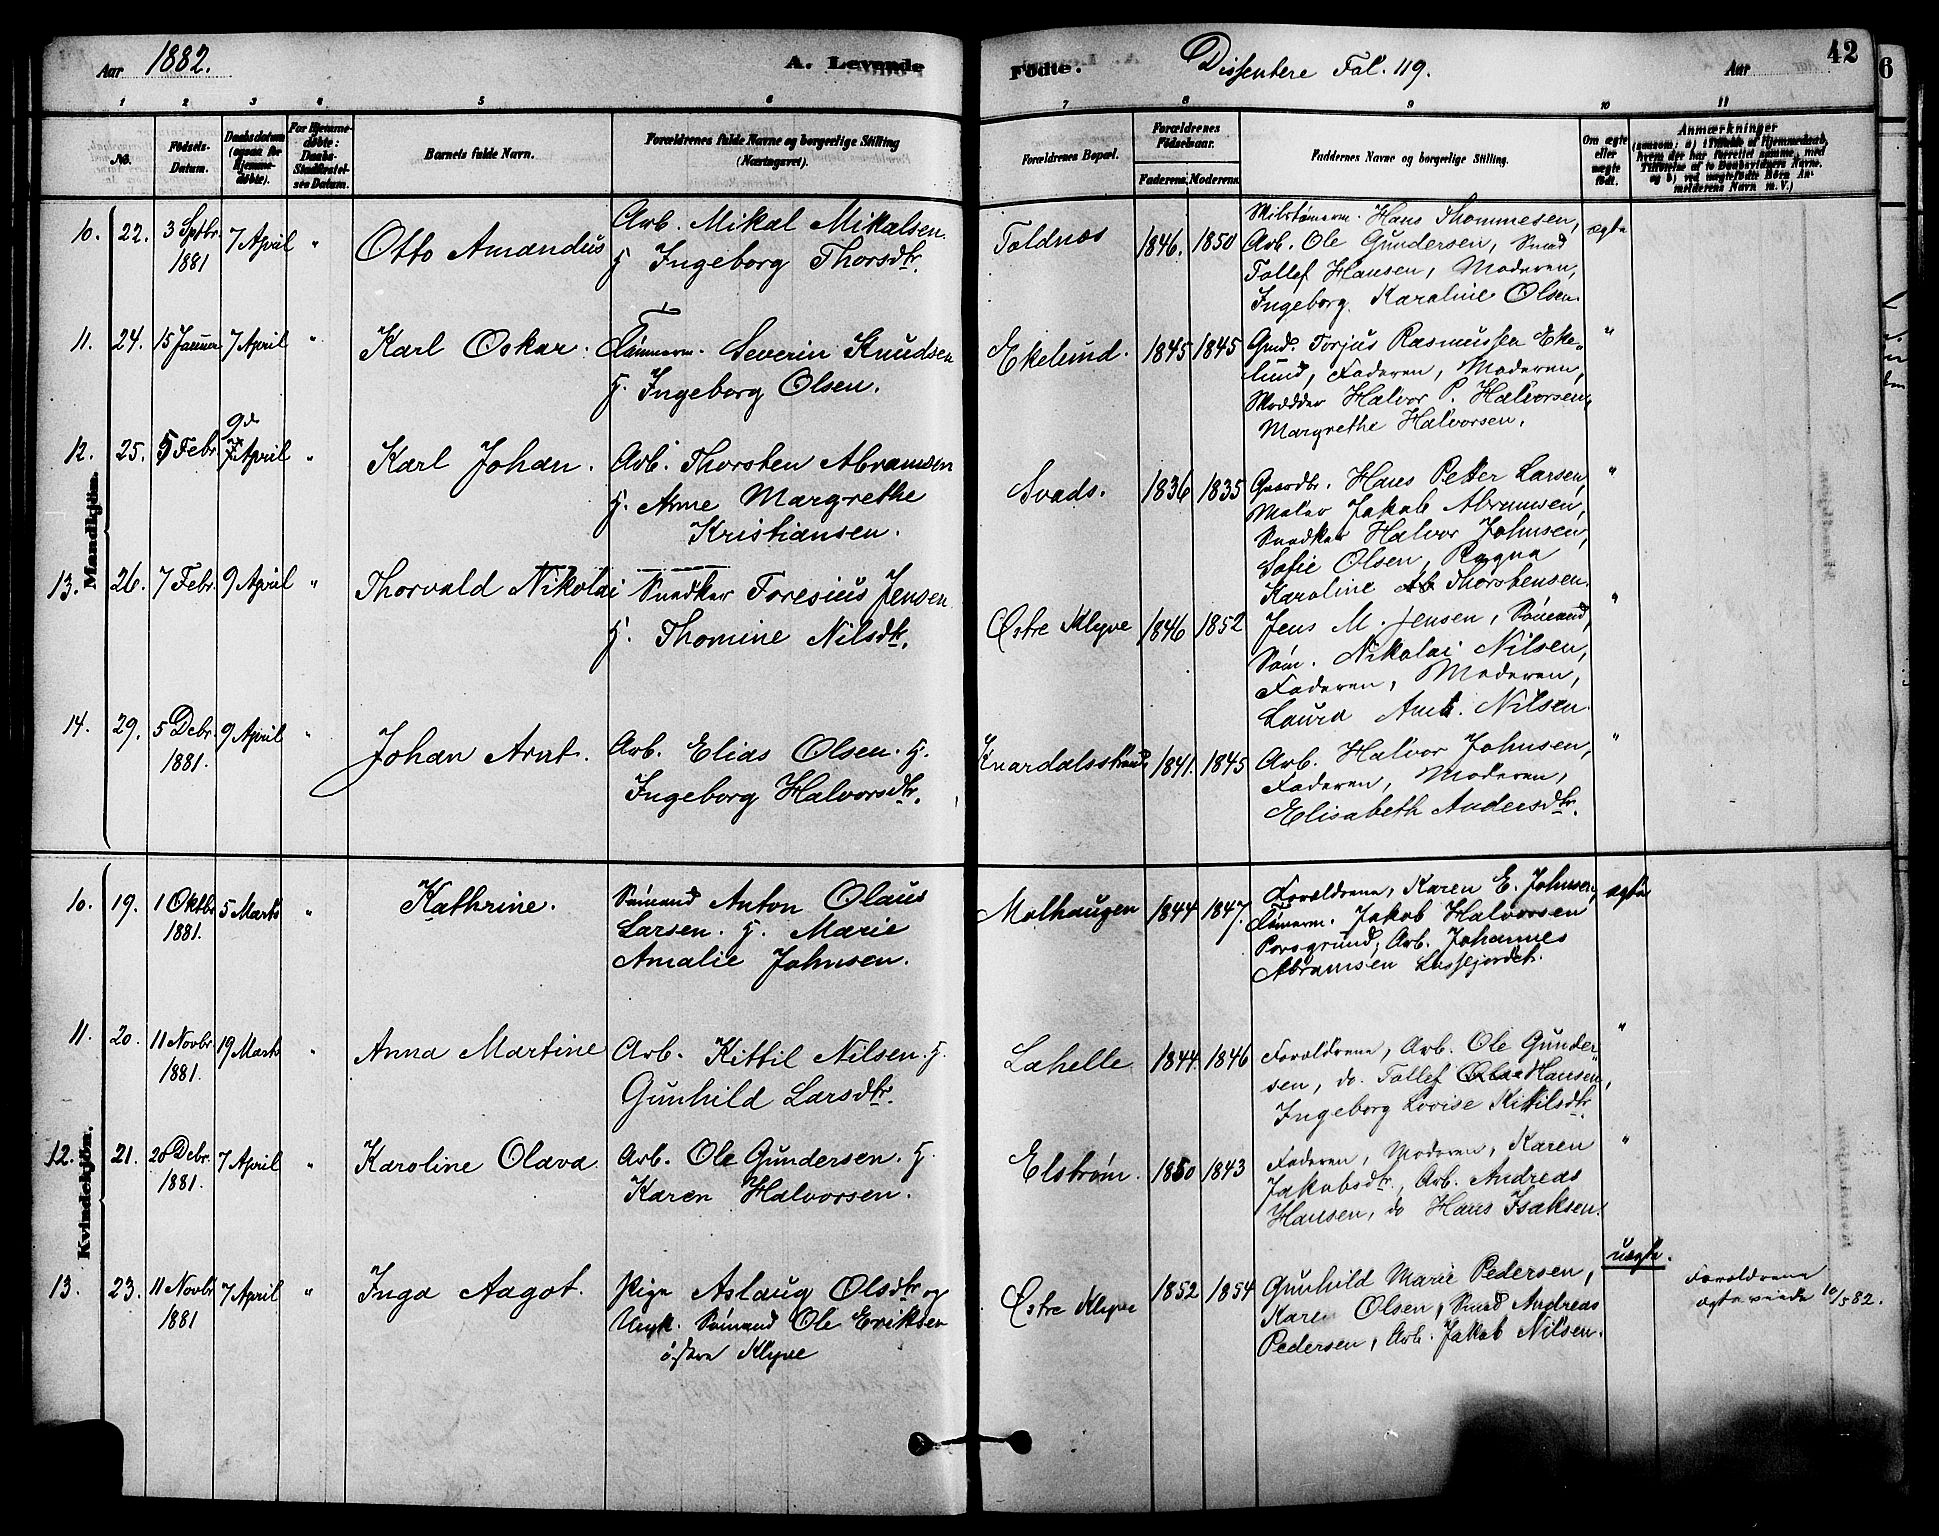 Aar 1882. A. Levende
1 2 3 4 5 6
No. Fødsels-Datum. Daabsdatum (ogsaa for Hjemmedøbte). For Hjemmedøbte: Daabs-Stadfæstelses Datum. Barnets fulde Navn. Forældrenes fulde Navne og borgerlige Stilling (Næringsvei).
Mandkjøn.
10. 22. 3 Sptbr. 1881 7 April " Otto Amandus Arb. Mikal Mikalsen.
Ingeborg Thorsdtr.
11. 24. 15 Januar 7 April " Karl Oskar. Tømmerm. Severin Knudsen
Ingeborg Olsen.
12. 25. 5 Febr 9de April " Karl Johan. Arb. Thorsten Abramsen
Anne Margrethe
Kristiansen.
13. 26. 7 Febr. 9 April " Thorvald Nikolai Snedker Foresius Jensen
Thomine Nilsdtr.
14. 29. 5 Debr. 1881. 9 April " Johan Arnt. Arb. Elias Olsen.
Ingeborg Halvorsdtr.
Kvindekjøn.
10. 19. 1 Oktbr 1881. 5 Marts " Kathrine. Sømand Anton Olaus
Larsen. Marie
Amalie Johnsen.
11. 20. 11 Novbr. 1881. 19 Marts " Anna Martine Arb. Kittil Nilsen.
Gunhild Larsdtr.
12. 21. 20 Debr. 1881. 7 April " Karoline Olava Arb. Ole Gundersen.
Karen Halvorsen.
13. 23. 11 Novbr 1881 7 April " Inga Aagot. Pige Aslaug Olsdtr og
Ungk. Sømand Ole Eriksen
østre Klyve
Fødte. Dissentere Fol. 119. Aar 42
7 8 9 10 11
Forældrenes Bopæl. Forældrenes Fødselsaar. Faderens. Moderens. Faddernes Navne og borgerlige Stilling. Om ægte eller uægte født. Anmærkninger (saasom: a) i Tilfælde af Hjemmedaab, hvem der har forrettet samme, med Tilføielse af to Daabsvidners Navne. og b) ved uægtefødte Børn Anmelderens Navn m. V.)
Toldnæs 1846. 1850 Hans Thommesen, ægte
Arb. Ole Gundersen, Smed
Tollef Hansen, Moderen,
Ingeborg Karoline Olsen.
Ekelund. 1845 1845 Grnd. Torjus Rasmussen Eke-
lund, Faderen, Moderen, "
Halvor P. Halvorsen,
Margrethe Halvorsen.
Svads. 1836 1835 Gaardbr. Hans Petter Larsen, "
Maler Jakob Abramsen,
Snedker Halvor Johnsen,
Sofie Olsen, Ragna
Karoline Thorstensen.
Østre Klyve 1846 1852 Jens M. Jensen, Sømand, "
Søm. Nikolai Nilsen,
Faderen, Moderen,
Laura Nilsen.
Knardalsstrand 1841. 1845 Arb. Halvor Johnsen, "
Faderen, Moderen,
Elisabeth Andersdtr.
Molhaugen 1844 1847. Forældrene, Karen E. Johnsen, ægte
Tømerm. Jakob Halvorsen
Porsgrund, Arb. Johannes
Abramsen
Lahelle 1844. 1846 Forældrene, Arb. Ole Gunder- "
sen, do. Tollef Hansen,
Ingeborg Lovise Kittilsdtr
Elstrøm. 1850 1843 Faderen, Moderen, Karen "
Jakobsdtr., Arb. Andreas
Hansen, do Hans Isaksen.
Østre Klyve 1852 1854 Gunhild Marie Pedersen, uægte. Forældrene
Karen Olsen, Smed Andreas ægteviede 10/5 82.
Pedersen, Arb. Jakob Nilsen.
6